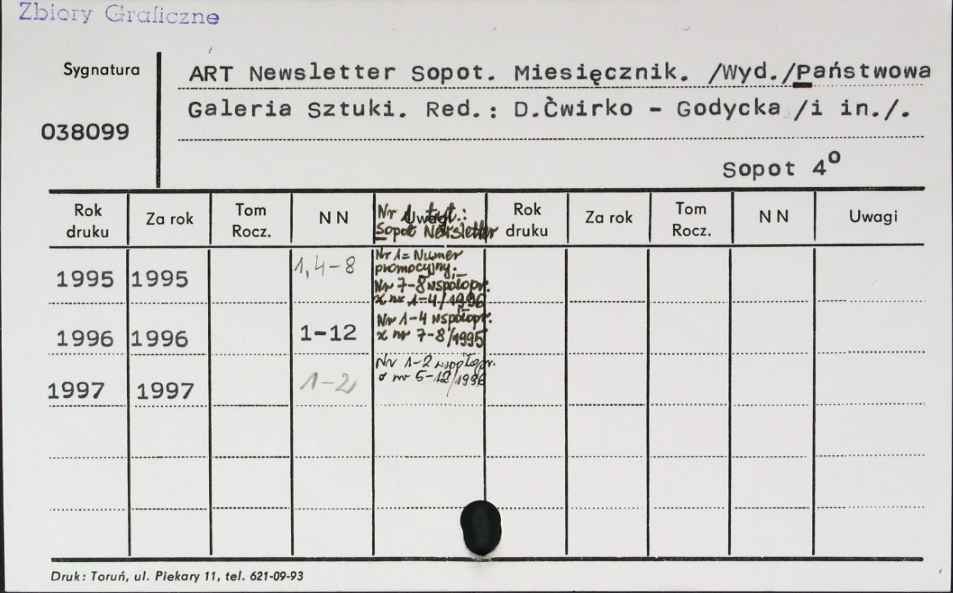 Zbiory Graficzne
Sygnatura
038099
ART Newsletter Sopot. Miesięcznik. /Wyd./Państwowa
Galeria Sztuki. Red.: D.Čwirko - Godycka /i in./.
Sopot 4º
Rok druku Za rok Tom Rocz. N N Uwagi Rok druku Za rok Tom Rocz. N N Uwagi
Nr 1 tyt.:
Sopot Newsletter
1995 1995 1,4-8 Nr 1= Numer
promocyjny.
Nr 7-8 współopr.
z nr 1-4/1996
1996 1996 1-12 Nr 1-4 współopr.
z nr 7-8/1995
1997 1997 1-2 Nr 1-2 współopr.
z nr 5-12/1996
Druk: Toruń, ul. Piekary 11, tel. 621-09-93